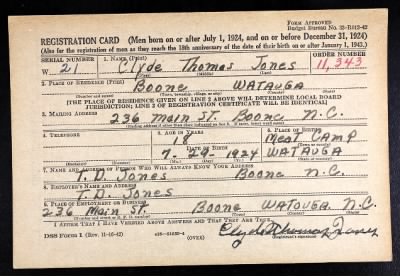 FORM APPROVED
Budget Bureau No. 33-R012-42
REGISTRATION CARD (Men born on or after July 1, 1924, and on or before December 31, 1924)
(Also for the registration of men as they reach the 18th anniversary of the date of their birth on or after January 1, 1943.)
SERIAL NUMBER 1. NAME (Print) ORDER NUMBER
W 21 Clyde Thomas Jones 11,343
(First) (Middle) (Last)
2. PLACE OF RESIDENCE (Print)
Boone WATAUGA
[THE PLACE OF RESIDENCE GIVEN ON LINE 2 ABOVE WILL DETERMINE LOCAL BOARD
JURISDICTION; LINE 2 OF REGISTRATION CERTIFICATE WILL BE IDENTICAL]
3. MAILING ADDRESS
236 Main St. Boone N.C.
4. TELEPHONE 5. AGE IN YEARS 6. PLACE OF BIRTH
18 Meat Camp
DATE OF BIRTH
7 - 29 - 1924 WATAUGA
7. NAME AND ADDRESS OF PERSON WHO WILL ALWAYS KNOW YOUR ADDRESS
T. D. Jones Boone N.C.
8. EMPLOYER'S NAME AND ADDRESS
T. D. Jones
9. PLACE OF EMPLOYMENT OR BUSINESS
236 Main St. Boone WATAUGA N.C.
I AFFIRM THAT I HAVE VERIFIED ABOVE ANSWERS AND THAT THEY ARE TRUE.
DSS Form 1 (Rev. 11-16-42) (OVER) Clyde Thomas Jones
(Registrant's signature)